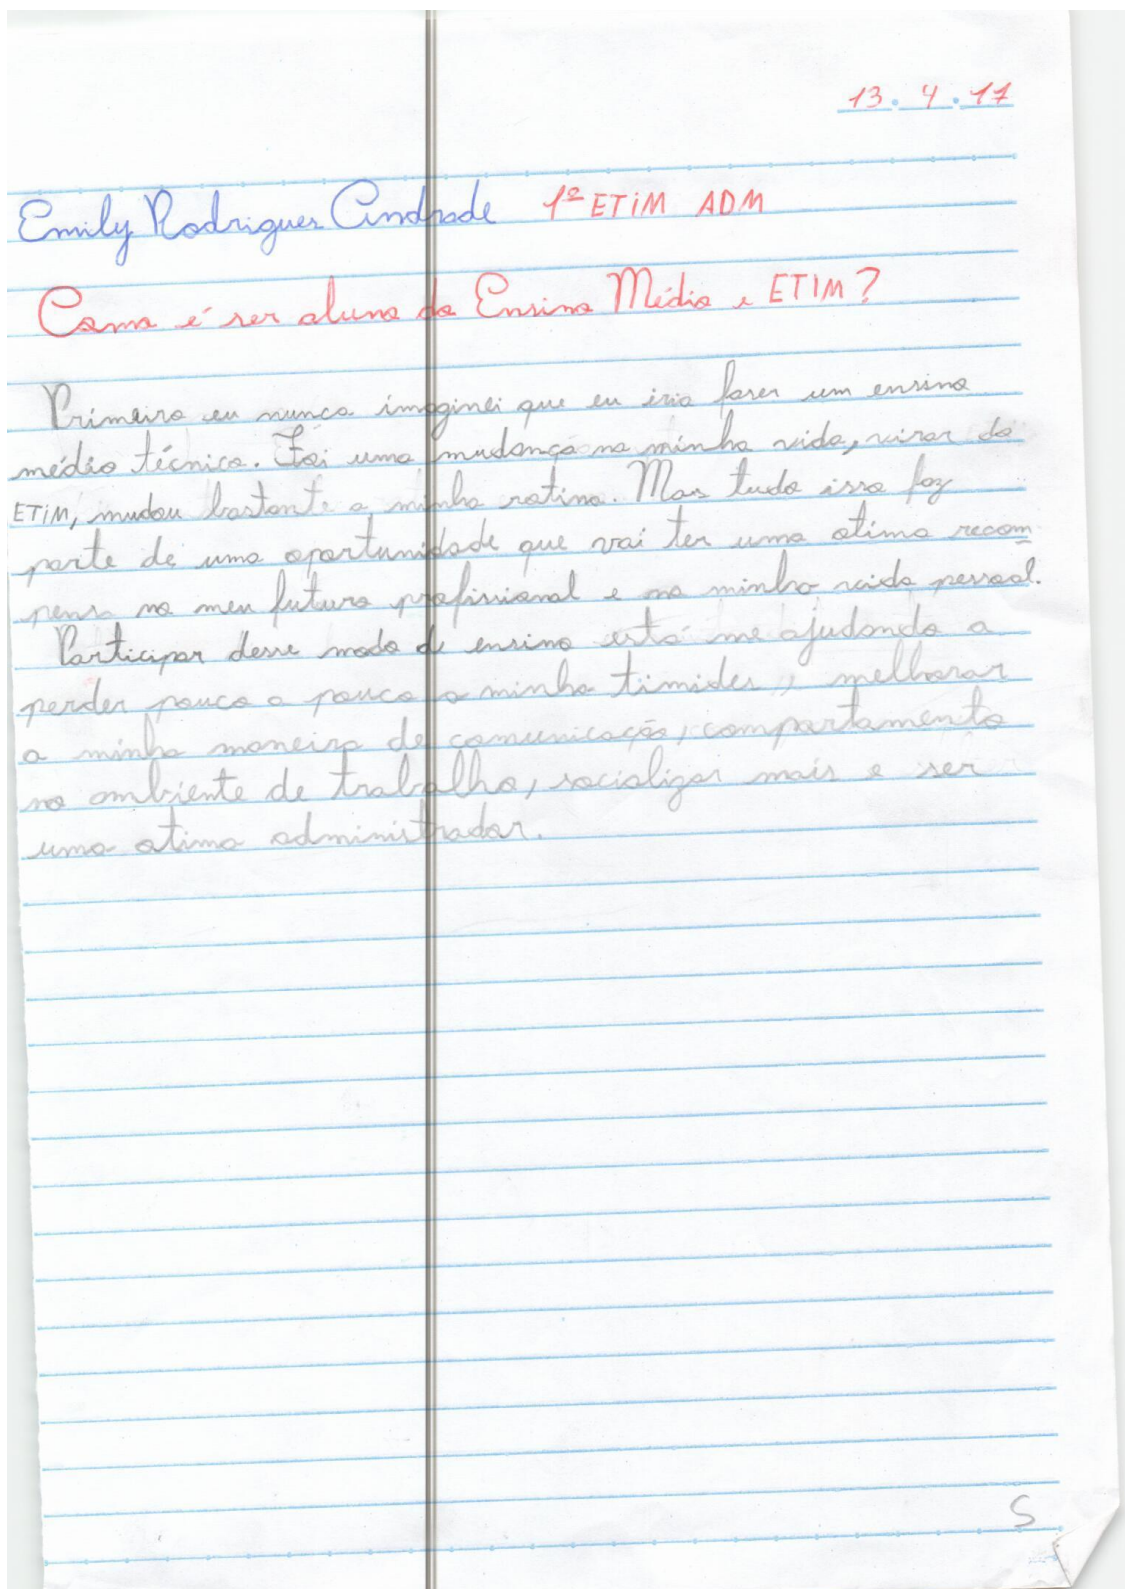 13.4.17
Emily Rodrigues Andrade 1º ETIM ADM
Como é ser aluno do Ensino Médio e ETIM?
Primeiro eu nunca imaginei que eu iria fazer um ensino
médio técnico. Foi uma mudança na minha vida, virar do
ETIM, mudou bastante a minha rotina. Mas tudo isso faz
parte de uma oportunidade que vai ter uma otima recom
pensa no meu futuro profissional e na minha vida pessoal.
Participar desse modo de ensino está me ajudando a
perder pouco a pouco a minha timides, melhorar
a minha maneira de comunicação, comportamento
no ambiente de trabalho, socializar mais e ser
uma otima administradar.
S